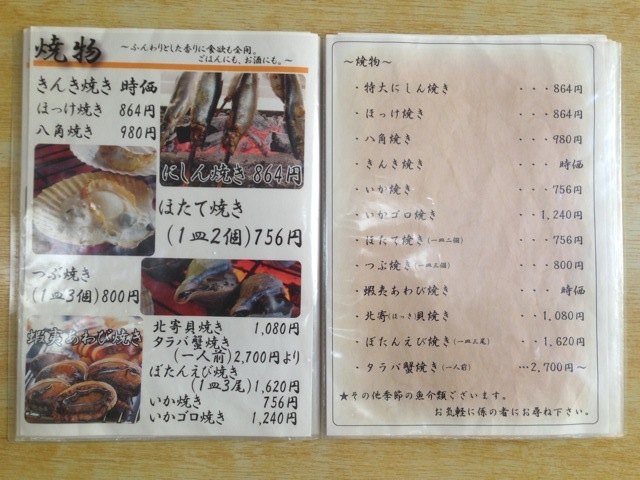 焼物
～ふんわりとした香りに食欲も全開。
ごはんにも、お酒にも。～
きんき焼き 時価
ほっけ焼き 864円
八角焼き 980円
にしん焼き 864円
ほたて焼き
(1皿2個)756円
つぶ焼き
(1皿3個)800円
蝦夷あわび焼き
北寄貝焼き 1,080円
タラバ蟹焼き
(一人前)2,700円より
ぼたんえび焼き
(1皿3尾)1,620円
いか焼き 756円
いかゴロ焼き 1,240円
～焼物～
・特大にしん焼き ・・・864円
・ほっけ焼き ・・・864円
・八角焼き ・・・980円
・きんき焼き ・・・時価
・いか焼き ・・・756円
・いかゴロ焼き ・・・1,240円
・ほたて焼き(一皿二個) ・・・756円
・つぶ焼き(一皿三個) ・・・800円
・蝦夷あわび焼き ・・・時価
・北寄(ほっき)貝焼き ・・・1,080円
・ぼたんえび焼き(一皿三尾) ・・・1,620円
・タラバ蟹焼き(一人前) …2,700円～
★その他季節の魚介類ございます。
お気軽に係の者にお尋ね下さい。